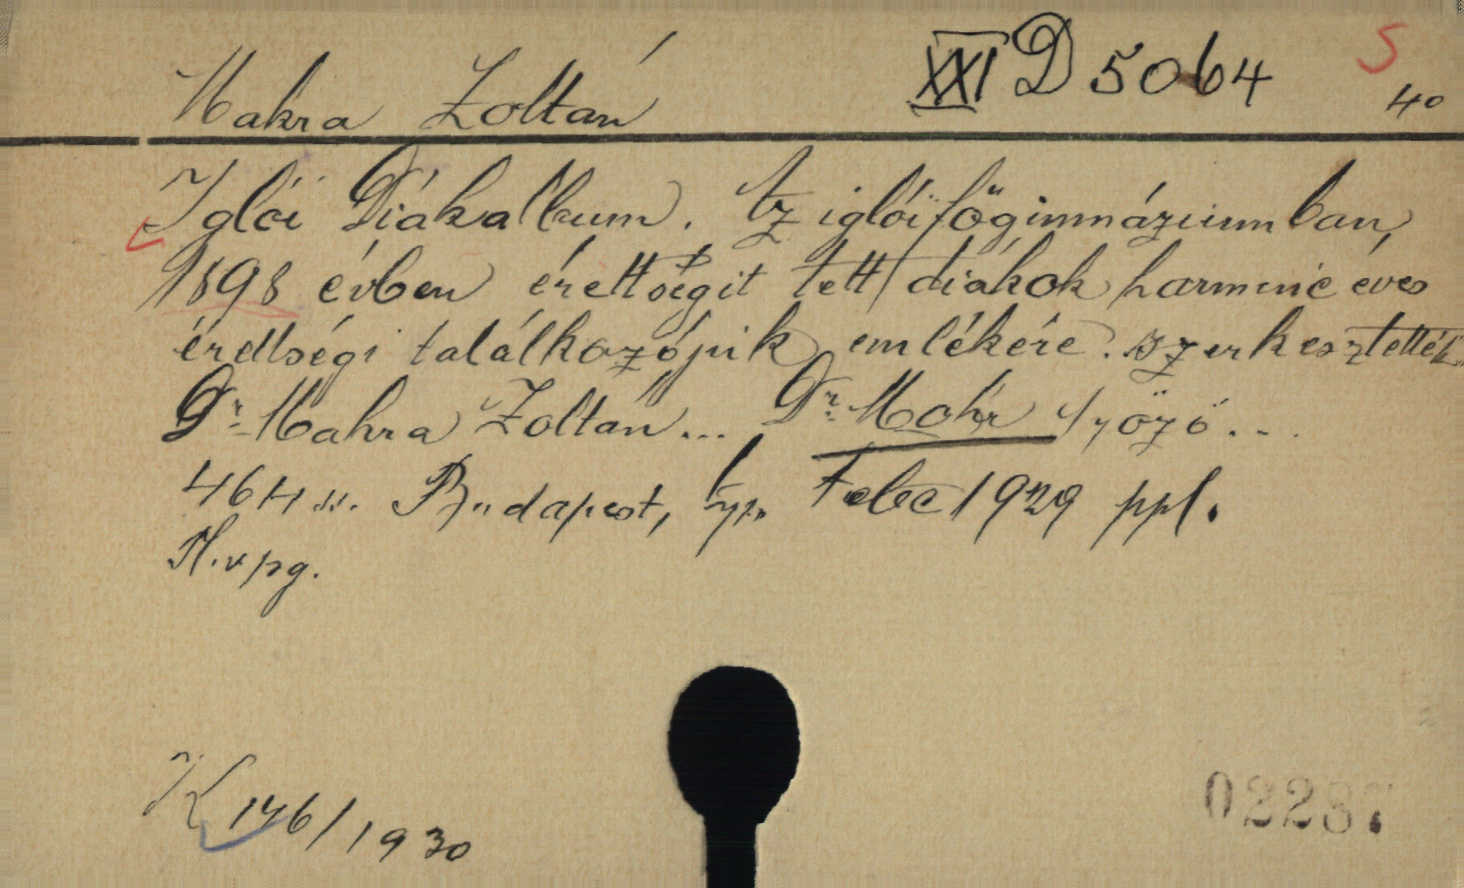 Makra Zoltán
XXI D 5064
S
40
Iglói Diákalbum. Az iglói főgimnáziumban,
1898 évben érettségit tett diákok harminc éves
érettségi találkozójuk emlékére. szerkesztették
Dr. Makra Zoltán... Dr. Mohr Győző...
464 s. Budapest, typ. Febe 1929 ppl.
H.v.pg.
K 146/1930
02287